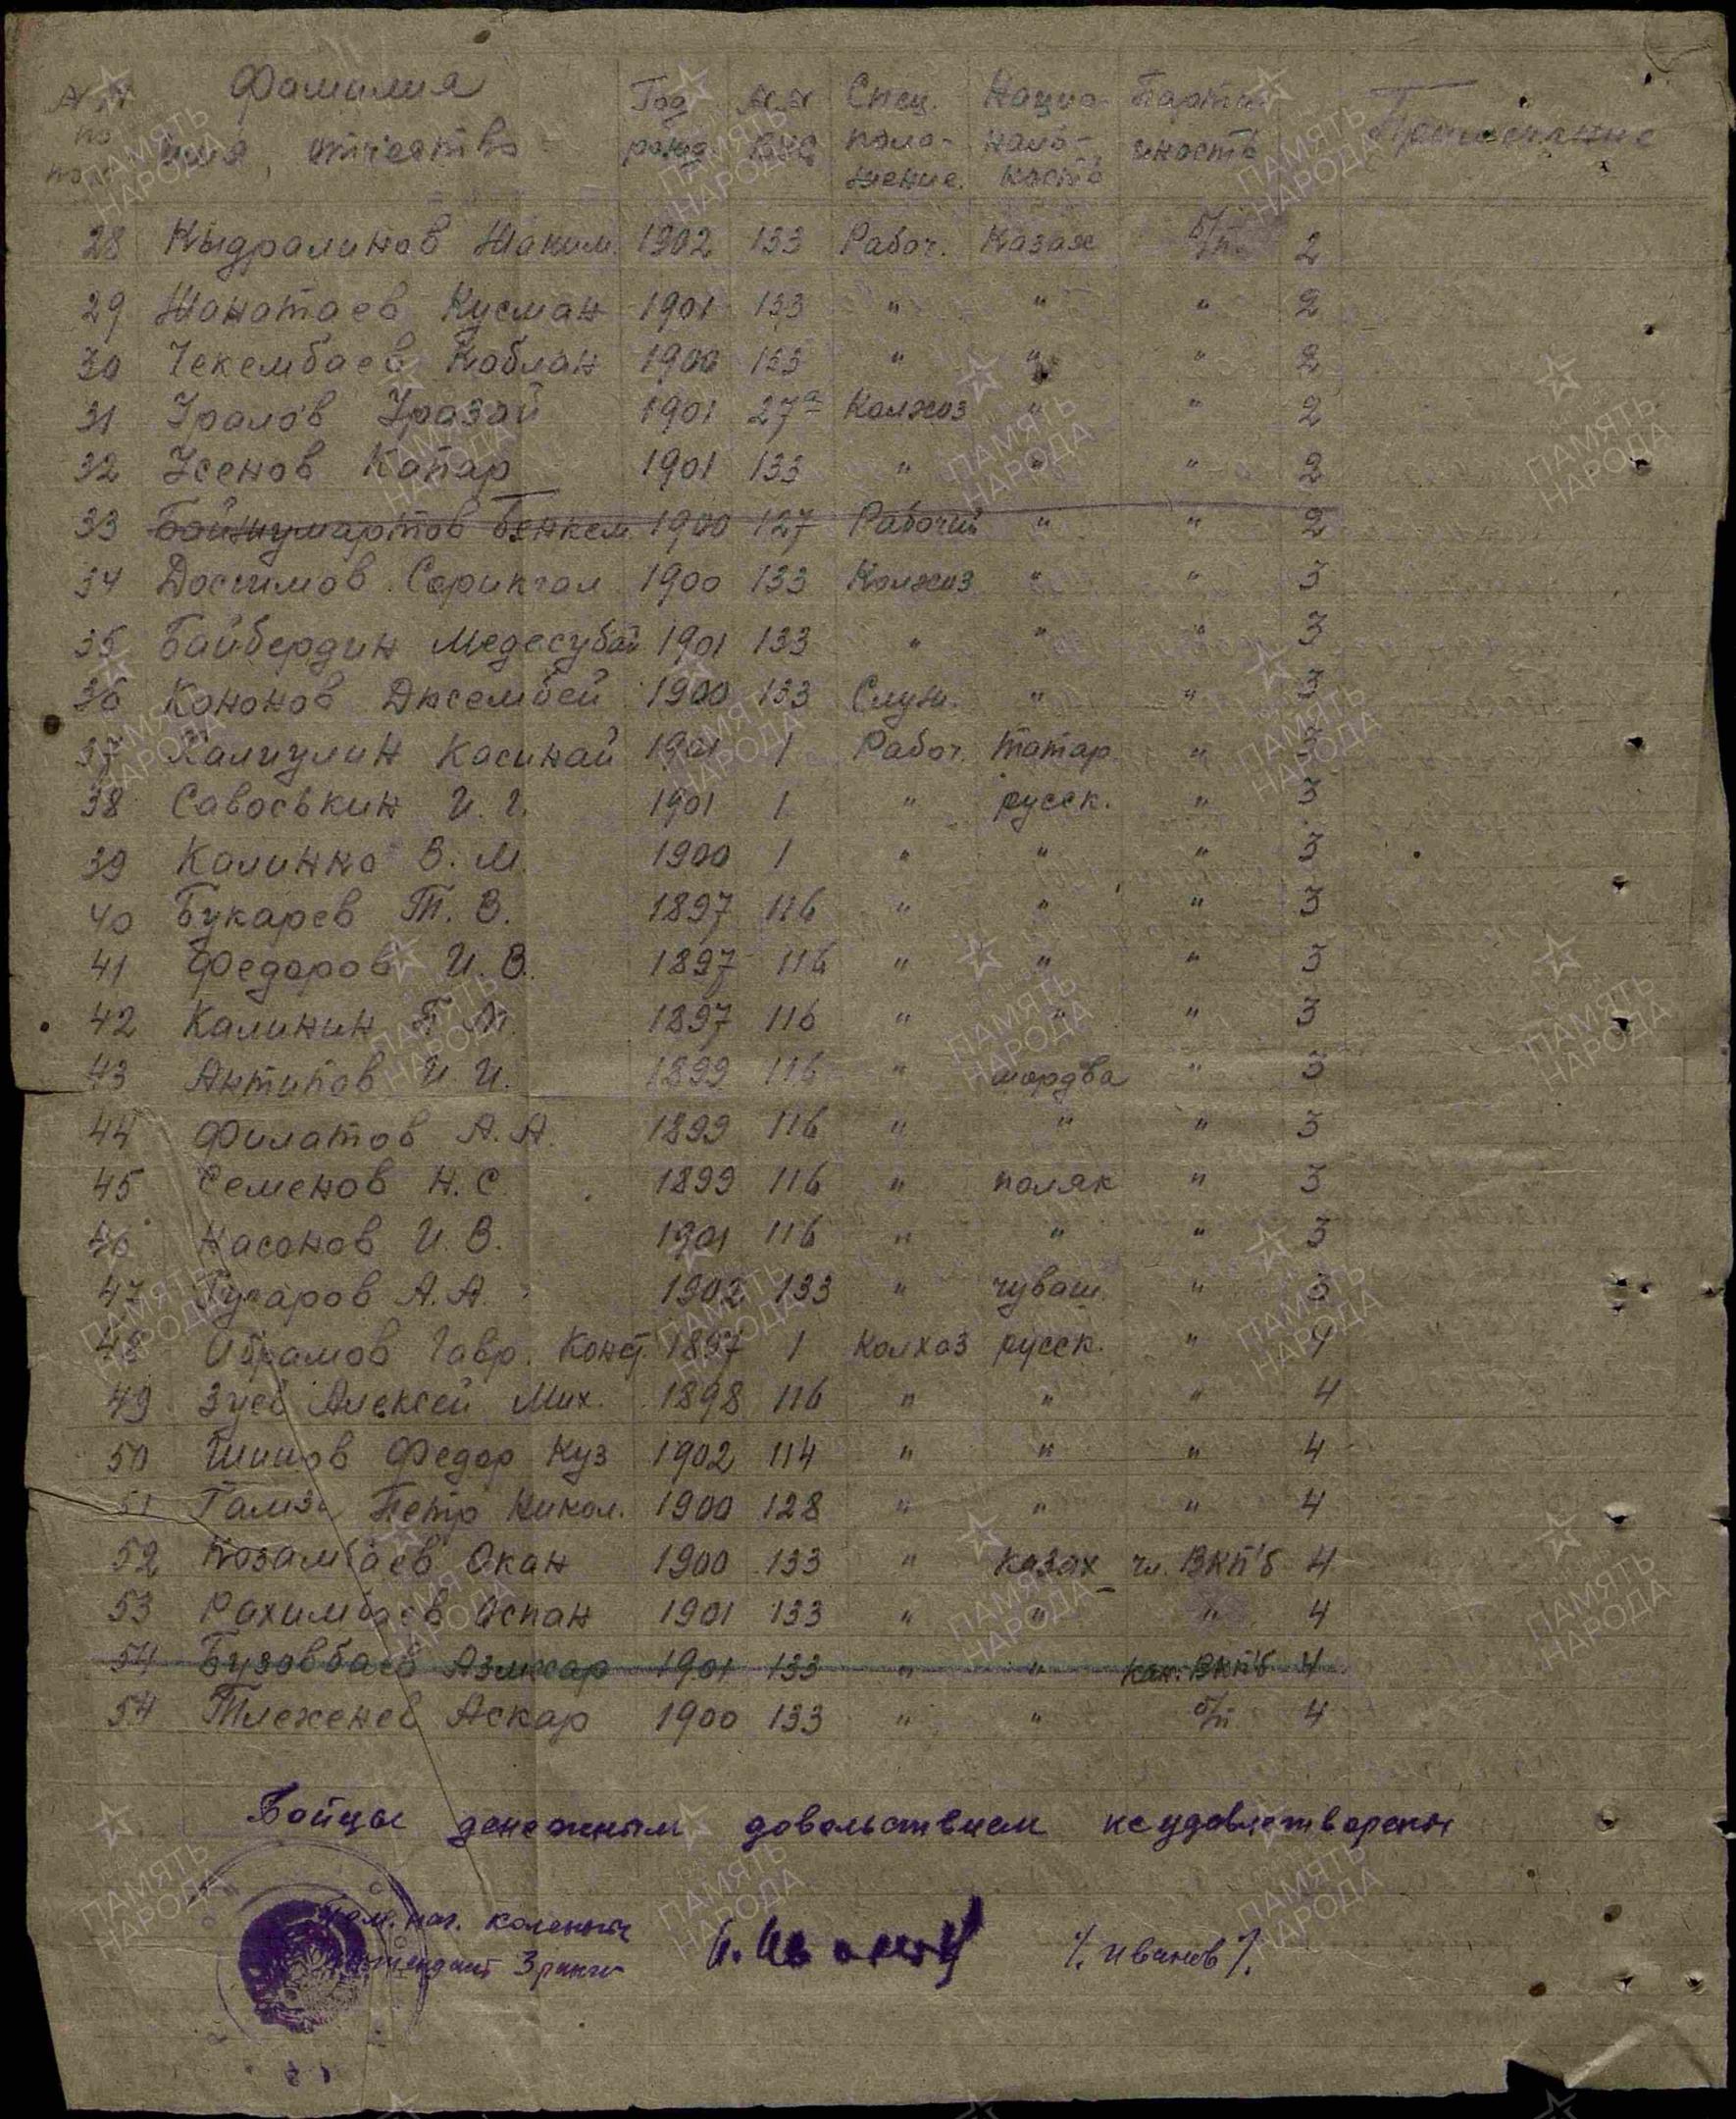 №№ по пор. Фамилия имя, отчество Год рожд. №№ ВУС Соц. поло-жение. Нацио-наль-ность Парти-йность Примечание
28 Кыдралинов Жаким 1902 133 Рабоч. Казах б/п. 2
29 Жанатаев Кусман 1901 133 " " " 2
30 Чекембаев Каблан 1900 133 " " " 2
31 Уралов Уразай 1901 27а Колхоз " " 2
32 Усенов Капар 1901 133 " " " 2
33 Байжумартов Бекжем 1900 127 Рабочий " " 2
34 Досчимов Серикгал 1900 133 Колхоз " " 3
35 Байбердин Медесубай 1901 133 " " " 3
36 Кононов Джсембей 1900 133 Служ. " " 3
37 Халиулин Касинай 1901 1 Рабоч. татар. " 3
38 Савоськин И. Г. 1901 1 " русск. " 3
39 Калинко В. М. 1900 1 " " " 3
40 Букарев Т. В. 1897 116 " " " 3
41 Федоров И. В. 1897 116 " " " 3
42 Калинин П. М. 1897 116 " " " 3
43 Антипов И. И. 1899 116 " мордва " 3
44 Филатов А. А. 1899 116 " " " 3
45 Семенов Н. С. 1899 116 " поляк " 3
46 Насонов И. В. 1901 116 " " " 3
47 Гусаров А. А. 1902 133 " чуваш. " 3
48 Абрамов Гавр. Конст. 1897 1 Колхоз русск. " 4
49 Зуев Алексей Мих. 1898 116 " " " 4
50 Шишов Федор Куз 1902 114 " " " 4
51 Петр Никол. 1900 128 " " " 4
52 Козамбаев Окан 1900 133 " казах чл. ВКП'б 4
53 Рахимбаев Аспан 1901 133 " " " 4
54 Бузовбаев Азмжар 1901 133 " " кан. ВКП'б 4
54 Тлеженев Аскар 1900 133 " " б/п 4
Бойцы денежным довольствием неудовлетворены
Пом. нач. колонны
интендант 3 ранга И. Иванов /. Иванов /.
ПАМЯТЬ НАРОДА